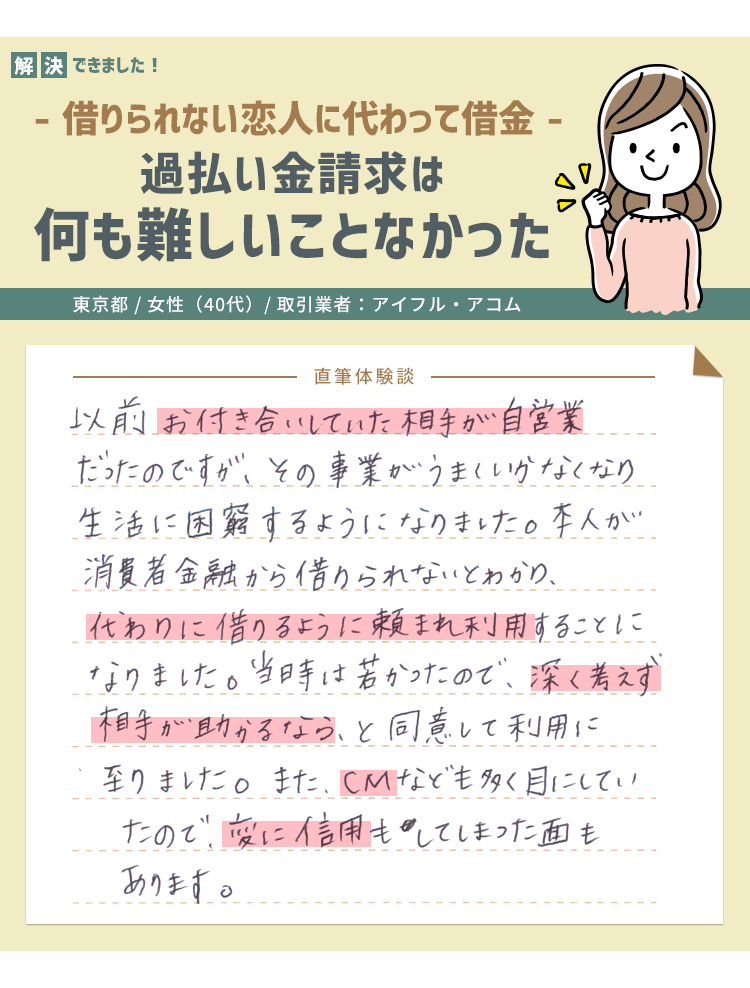 解決できました!
- 借りられない恋人に代わって借金 -
過払い金請求は
何も難しいことなかった
東京都 / 女性（40代）/ 取引業者：アイフル・アコム
直筆体験談
以前お付き合いしていた相手が自営業
だったのですが、その事業がうまくいかなくなり
生活に困窮するようになりました。本人が
消費者金融から借りられないとわかり、
代わりに借りるように頼まれ利用することに
なりました。当時は若かったので、深く考えず
相手が助かるなら、と同意して利用に
至りました。また、CMなども多く目にしてい
たので、変に信用もしてしまった面も
あります。